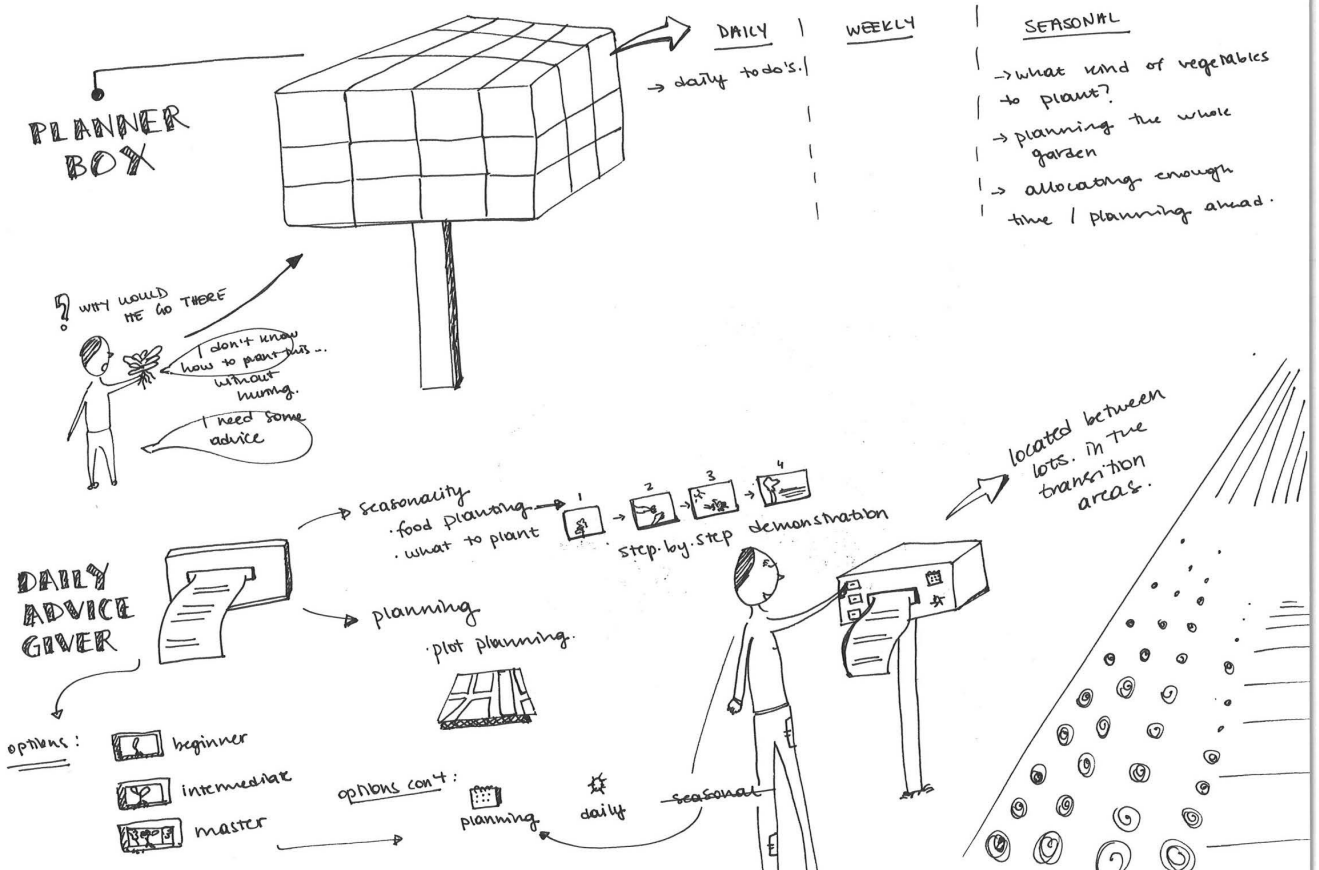 PLANNER
BOX
DAILY
→ daily todo's.
WEEKLY
SEASONAL
→ what kind of vegetables
to plant?
→ planning the whole
garden
→ allocating enough
time / planning ahead.
? WHY WOULD
HE GO THERE
I don't know
how to plant this...
without
hurting.
I need some
advice
DAILY
ADVICE
GIVER
seasonality
· food planting
· what to plant
1 2 3 4
step.by.step demonstration
planning
· plot planning.
located between
lots. in the
transition
areas.
options:
beginner
intermediate
master
options con't:
planning
daily
seasonal